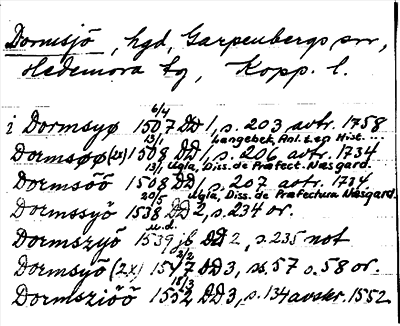 Domsjö, hgd, Garpenbergs sn,
Hedemora tg, Kopp. l.
6/4
i Dormsyø 1507 DD 1, s. 203 avtr. 1758
13/1 Langebek, Anl. t. en Hist.
Dormsøø (2x) 1508 DD 1, s. 206 avtr. 1734
13/1 Ugla, Diss. de Præfect. Næsgard.
Dormsöö 1508 DD 1, s. 207 avtr. 1734
20/5 Ugla, Diss. de Præfectura Næsgard.
Dormssyö 1538 DD 2, s. 234 or.
u.d.
Dormszyö 1539 jb DD 2, s. 235 not
2/2
Dormsyö (2x) 1547 DD 3, ss. 57 o. 58 or.
18/3
Dormsziöö 1552 DD 3, s. 134 avskr. 1552